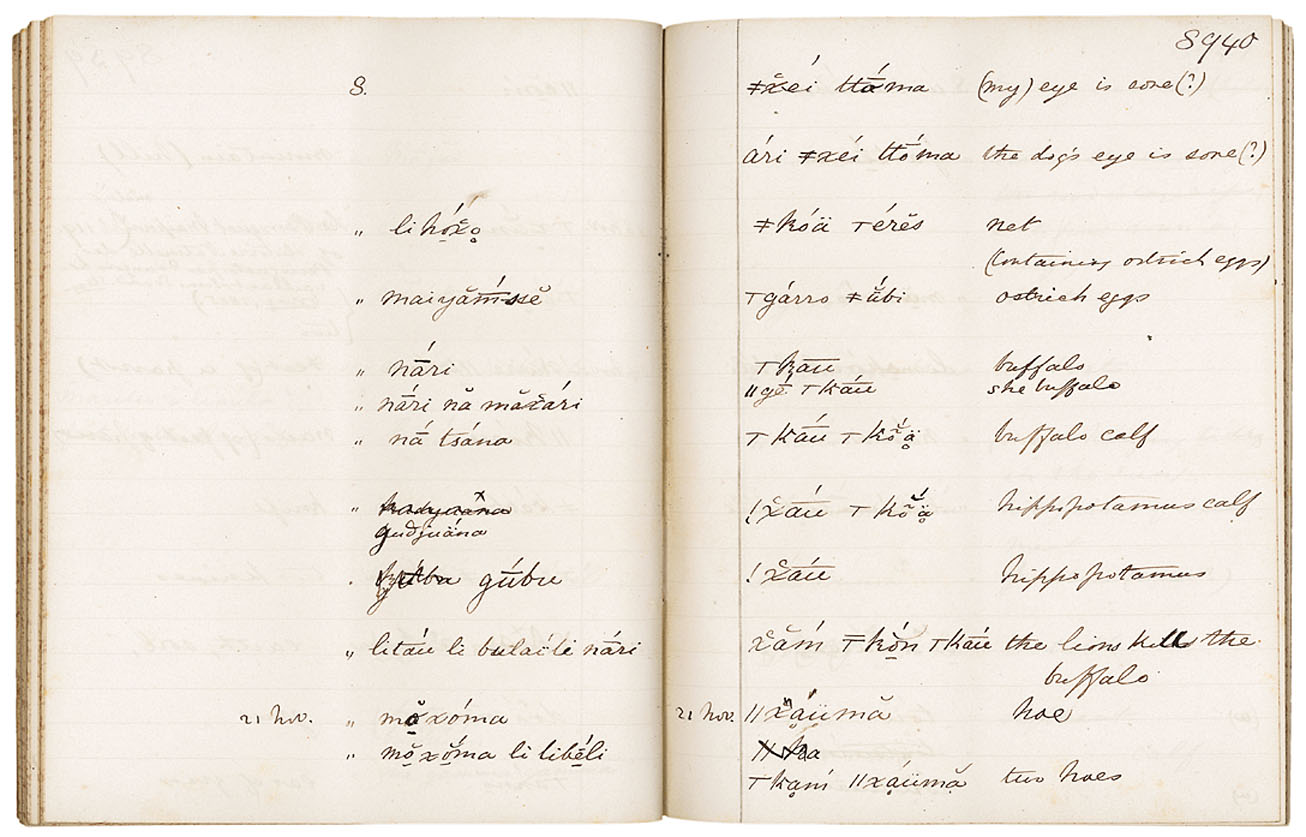 S.
" li hóx̌o̥
" maiyăḿssĕ
" nā́ri
" nā́ri nă măx̌ári
" nā́ tsána
guðjuána
" gū́bu
" litáu li bulaíli nā́ri
21 Nov. " mŏxóma
" mŏxŏ́ma li libéli
8940
ǂx̌éi ttā́ma (my) eye is sore (?)
ári ǂxéi ttṓma the dog's eye is sore (?)
ǂkóä ꞇérĕs net
(containing ostrich eggs)
ꞇgárro ǂŭ́bi ostrich eggs
ꞇkau buffalo
ǁgé ꞇkáu she buffalo
ꞇkáu ꞇkŏ̃ḁ̈́ buffalo calf
!x̌áu ꞇkŏ̃ḁ̈́ hippopotamus calf
!x̌áu hippopotamus
x̌ăḿ ꞇkǒ́n ꞇkáu the lions kill the
buffalo
21 Nov. ǁx̌áümă hoe
ꞇkḁḿ ǁxáümă two hoes